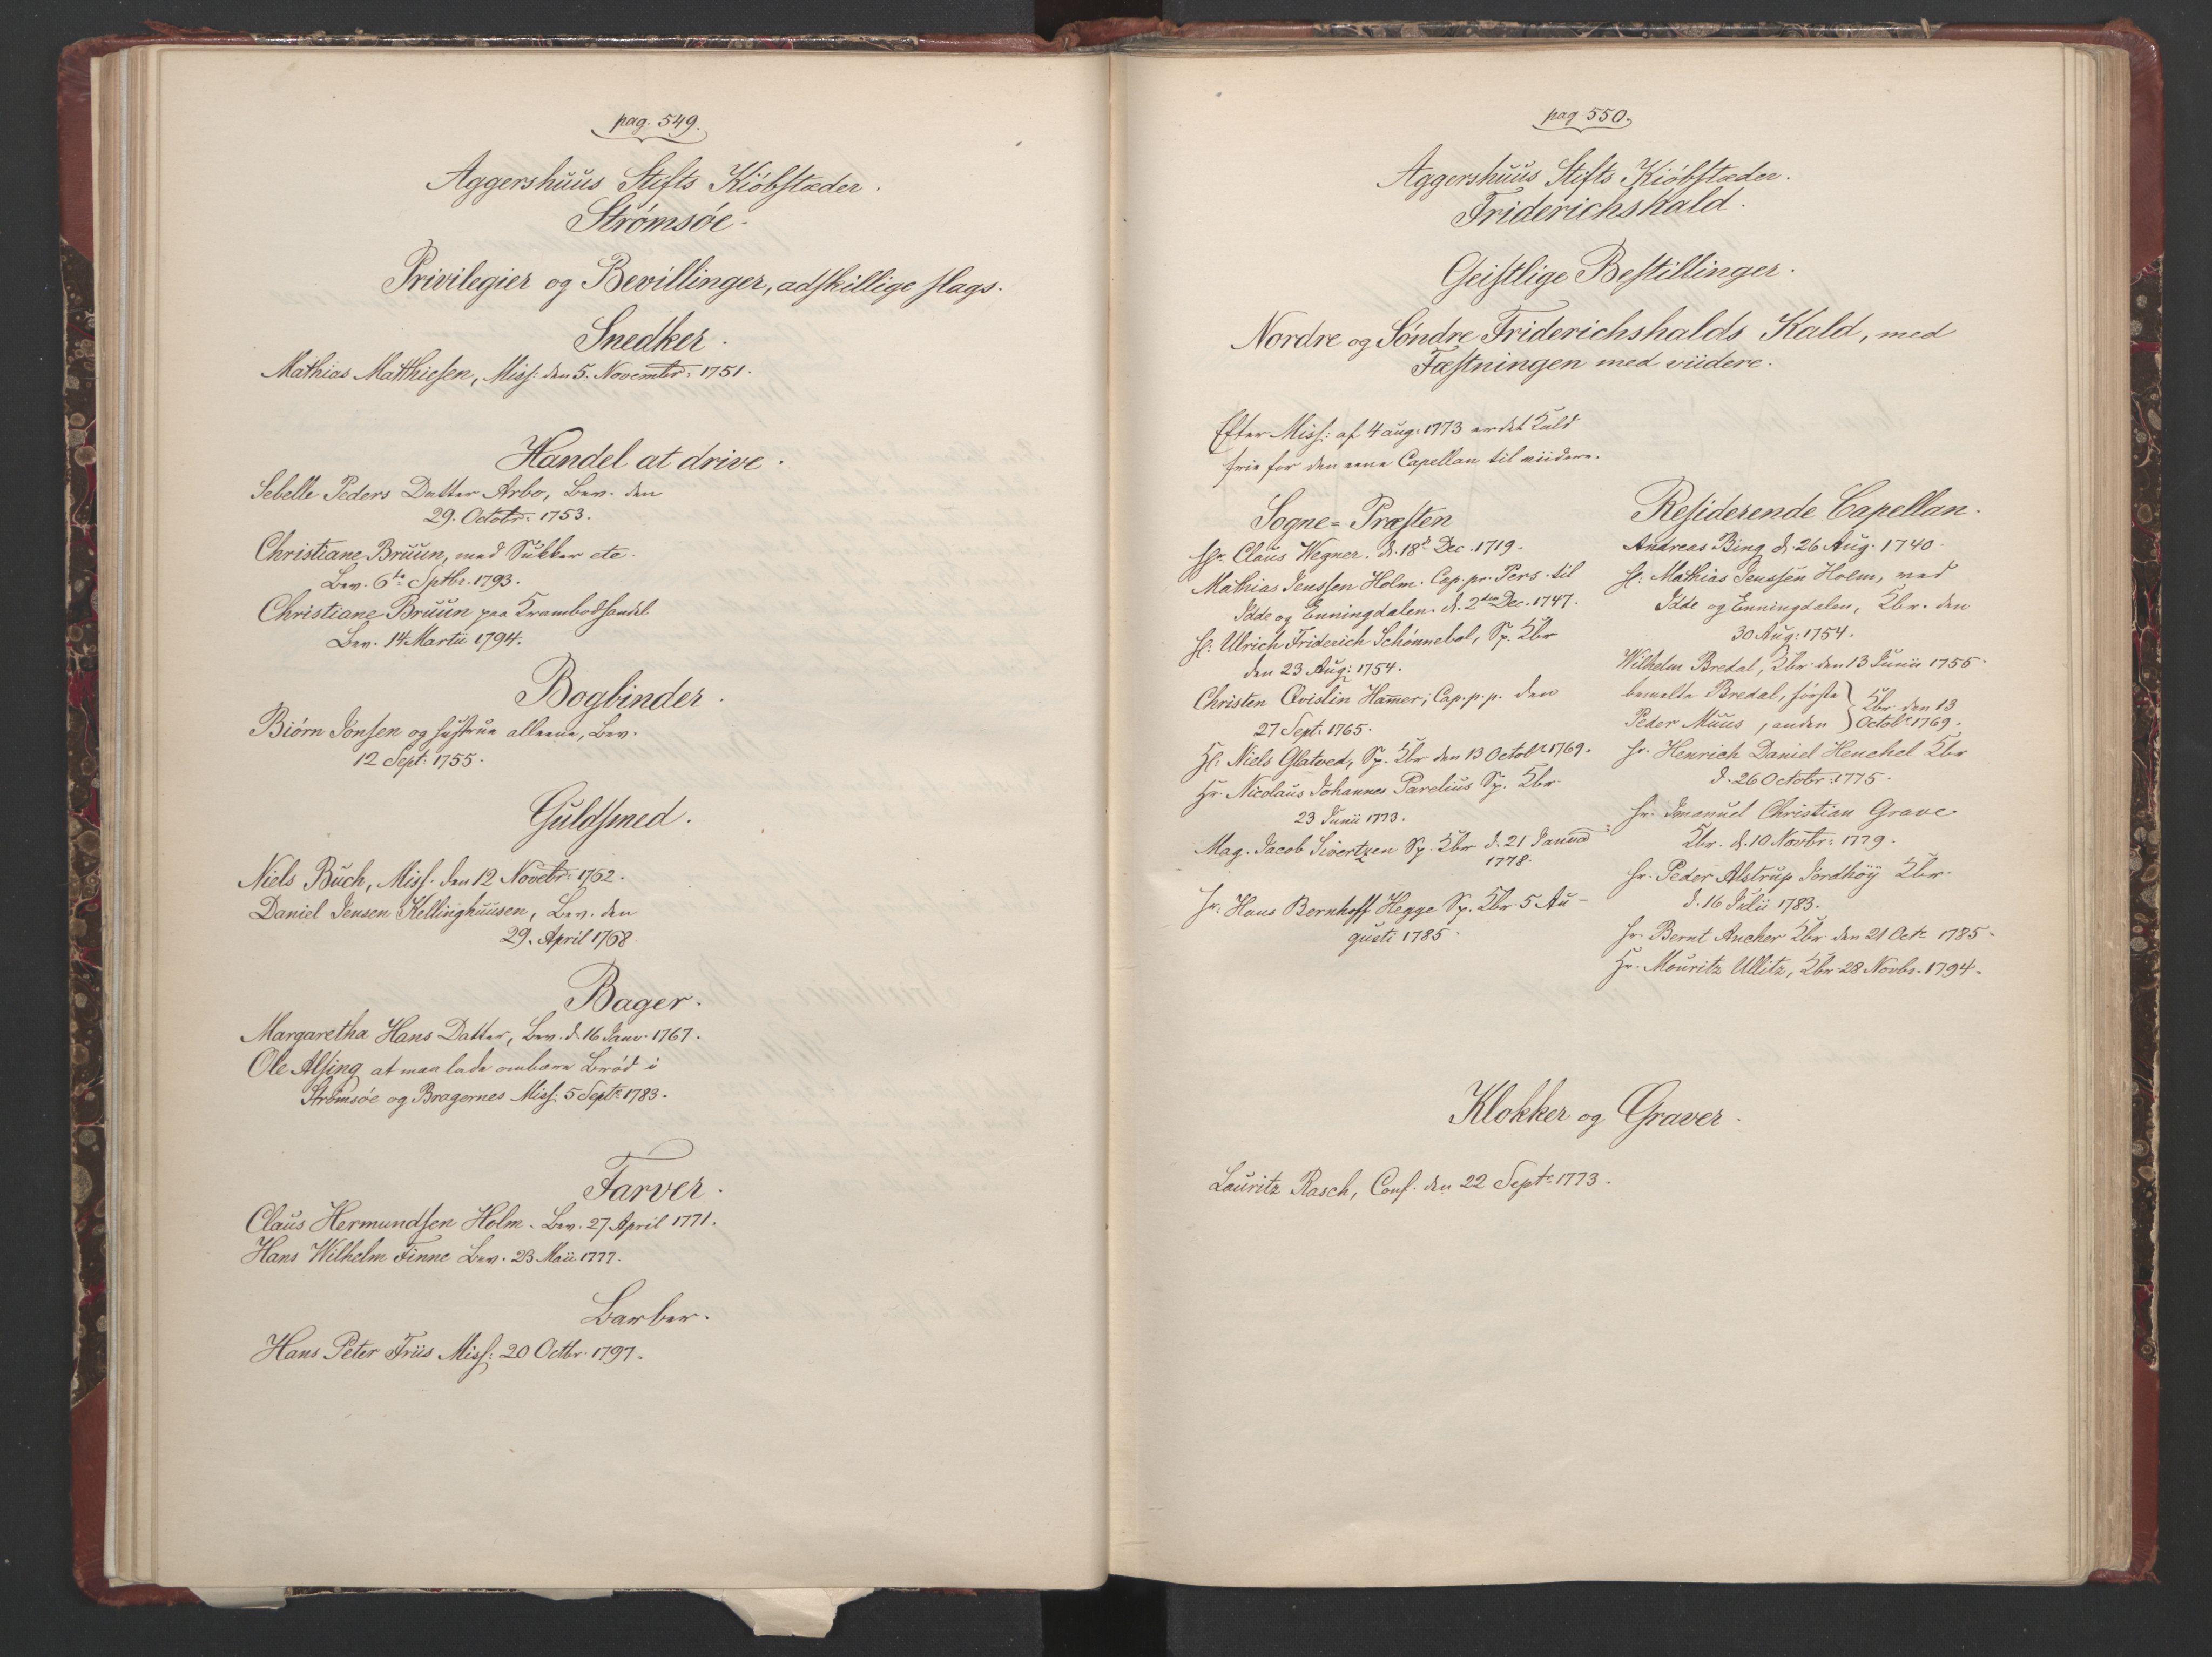 pag. 549.
Aggershuus Stifts Kiöbstæder.
Strømsøe.
Privilegier og Bevillinger, adskillige slags.
Snedker.
Mathias Matthiesen, Miss: den 5. Novembr: 1751.
Handel at drive.
Sebelle Peders Datter Arbo, Bev. den
29. Octobr: 1753.
Christiane Bruun, med Sukker etc.
Bev. 6te Sptbr. 1793.
Christiane Bruun paa Krambodhandel
Bev. 14 Martii 1794.
Bogbinder.
Biørn Jonsen og hustrue alleene, Bev.
12 Sept: 1755.
Guldsmed.
Niels Buch, Miss. den 12 Novebr: 1762.
Daniel Jensen Kellinghuusen, Bev. den
29. April 1768.
Bager.
Margaretha Hans Datter, Bev. d. 16 Janv. 1767.
Ole Alsing at maa lade ombære Brød i
Strømsøe og Bragernes Miss: 5 Septr 1783.
Farver.
Claus Hermundsen Holm. Bev. 27 April 1771.
Hans Wilhelm Finne Bev. 23 Maii 1777.
Barber.
Hans Peter Friis Miss: 20 Octbr. 1797.
pag. 550.
Aggershuus Stifts Kiöbstæder.
Friderichshald.
Geistlige Bestillinger.
Nordre og Söndre Friderichshalds Kald, med
Fæstningen med viidere.
Efter Miss: af 4 aug: 1773 er det Kald
frie for den eene Capellan til viidere.
Sogne-Præsten
Hr. Claus Wegner. d. 18d Dec. 1719.
Mathias Jenssen Holm. Cap. pr. Pers. til
Idde og Enningdalen. d. 2den Dec. 1747.
H: Ulrich Friderich Schönnebøl, Sp. Kbr
den 23 Aug: 1754.
Christen Qvislin Ham̅er, Cap. p. p. den
27 Sept: 1765.
H: Niels Glatved, Sp. Kbr den 13 Octobr 1769.
Hr. Nicolaus Johannes Parelius Sp. Kbr.
23 Junii 1773.
Mag. Jacob Sivertzen Sp. Kbr d. 21 Januar
1778.
Hr. Hans Bernhoff Hegge Sp. Kbr. 5 Au-
gusti 1785.
Residerende Capellan.
Andreas Bing d. 26 Aug. 1740.
H: Mathias Jenssen Holm, med
Idde og Enningdalen, Kbr. den
30 Aug: 1754.
Wilhelm Bredal, Kbr den 13 Junii 1755.
bemelte Bredal, første } Kbr. den 13
Peder Muus, anden } Octobr 1769.
Hr. Henrich Daniel Henchel Kbr
d. 26 Octobr: 1775.
Hr. Imanuel Christian Grave
Kbr. d. 10 Novbr: 1779.
Hr. Peder Alstrup Jordhöy Kbr.
d. 16 Julii 1783.
Hr. Bernt Ancher Kbr den 21 Oct: 1785.
Hr. Mouritz Ullitz, Kbr 28 Novbr. 1794.
Klokker og Graver.
Lauritz Rasch, Conf. den 22 Septr 1773.